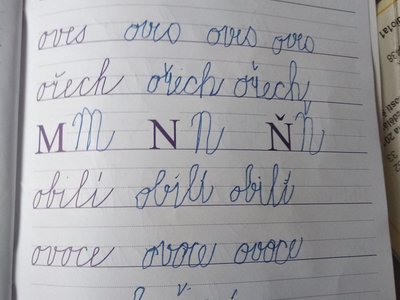 oves oves oves oves
ořech ořech ořech
M M N N Ň Ň
obilí obilí obilí
ovoce ovoce ovoce